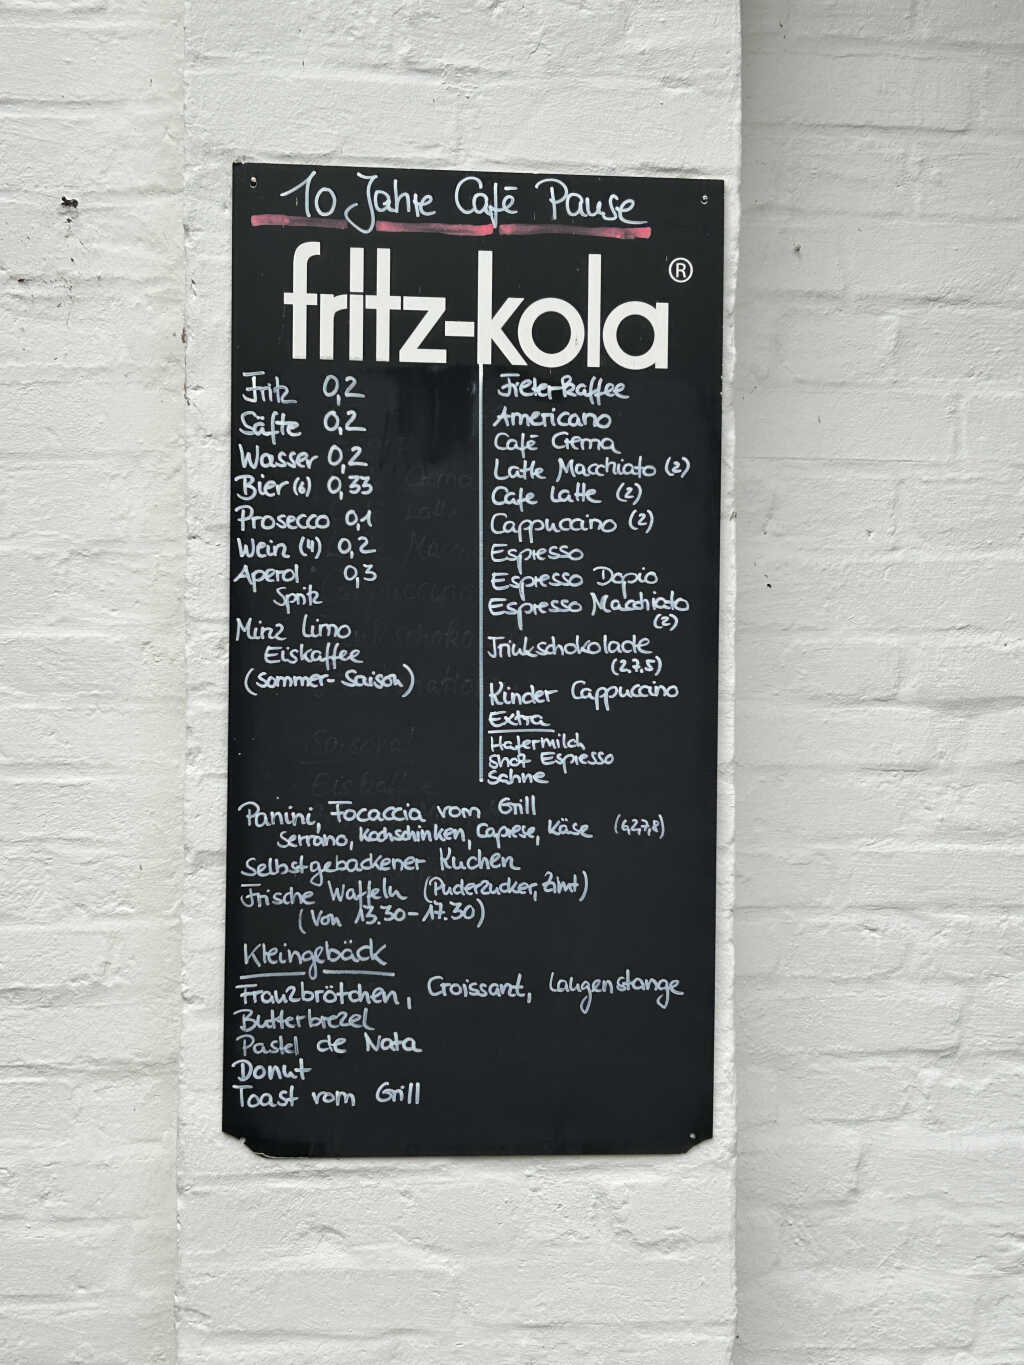 10 Jahre Café Pause
fritz-kola®
Fritz 0,2
Säfte 0,2
Wasser 0,2
Bier (6) 0,33
Prosecco 0,1
Wein (4) 0,2
Aperol 0,3
Spritz
Minz Limo
Eiskaffee
(Sommer-Saison)
Filterkaffee
Americano
Café Crema
Latte Macchiato (2)
Cafe Latte (2)
Cappuccino (2)
Espresso
Espresso Dopio
Espresso Macchiato
(2)
Trinkschokolade
(2,7,5)
Kinder Cappuccino
Extra
Hafermilch
Shot Espresso
Sahne
Panini, Focaccia vom Grill
Serrano, Kochschinken, Caprese, Käse
Selbstgebackener Kuchen
Frische Waffeln (Puderzucker, Zimt)
(Von 13.30-17.30)
Kleingebäck
Franzbrötchen, Croissant, Laugenstange
Butterbrezel
Pastel de Nata
Donut
Toast vom Grill